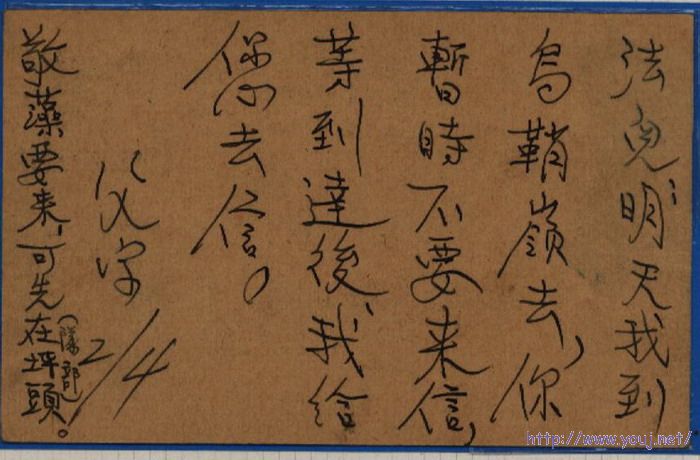 法兒：明天我到
烏鞘嶺去，你
暫時不要来信，
等到達後我給
您去信。
父字
2/4
敬藻要来，可先在坪頭。
（隊部）
http://www.youj.net/